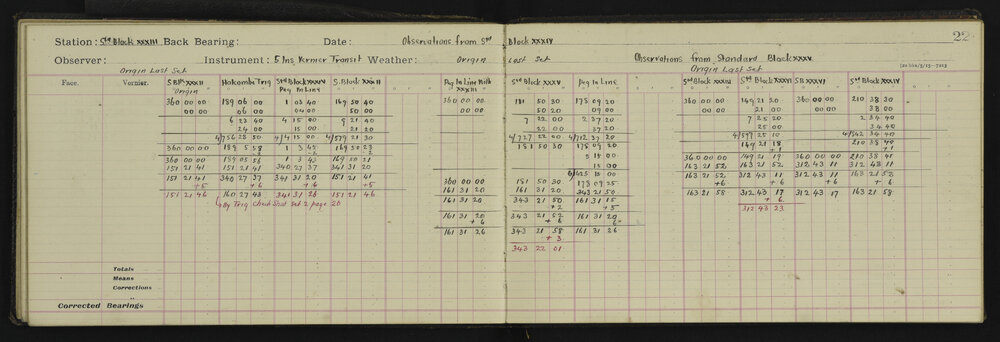 22
Station: Std Block XXXIII Back Bearing: Date: Observations from Std Block XXXIV
Observer: Instrument: 5 Ins Vernier Transit Weather: Origin Last Set Observations from Standard Block XXXV
Origin Last Set Origin Last Set
Face. Vernier. S. Blk XXXII Hokombe Trig Std Block XXXIV S. Block XXXII Peg In Line Nth Std Block XXXV Peg In Line Std Block XXXIV Std Block XXXVI S B XXXVI Std Block XXXIV
"Origin" Peg In Line XXXIII
360 00 00 189 06 00 1 03 40 169 50 40 360 00 00 181 50 30 178 09 20 360 00 00 149 21 20 360 00 00 210 38 30
00 00 06 00 04 00 50 00 00 00 50 20 09 00 00 00 21 00 00 00 38 00
6 23 40 4 15 00 9 21 40 7 22 00 2 37 20 7 25 20 2 34 40
24 00 15 00 21 20 22 00 37 20 25 00 34 40
4/756 23 50 4/4 15 00 4/579 21 30 4/727 22 00 4/712 37 20 4/597 25 10 4/842 34 40
360 00 00 189 5 58 1 3 45 169 50 23 181 50 30 178 09 20 149 21 18 210 38 40
360 00 00 189 05 56 1 3 43 169 50 21 5 15 00 360 00 00 149 21 19 360 00 00 210 38 41
151 21 41 151 21 41 340 27 37 341 31 20 15 00 163 21 52 163 21 52 312 43 11 312 43 11
151 21 41 340 27 37 341 31 20 151 21 41 360 00 00 151 50 30 178 09 25 163 21 52 312 43 11 312 43 11 163 21 52
+5 +6 +6 +5 161 31 20 161 31 20 343 21 50 +6 +6 +6 +6
151 21 46 160 27 43 341 31 26 151 21 46 161 31 20 343 21 50 161 31 15 163 21 58 312 43 17 312 43 17 163 21 58
By Trig Check Shot Set 2 page 20 +2 +5 +6
161 31 20 343 21 52 161 31 20 312 43 23
+6 +6 6
161 31 26 343 21 58 161 31 26
+3
343 22 01
Totals
Means
Corrections
Corrected Bearings